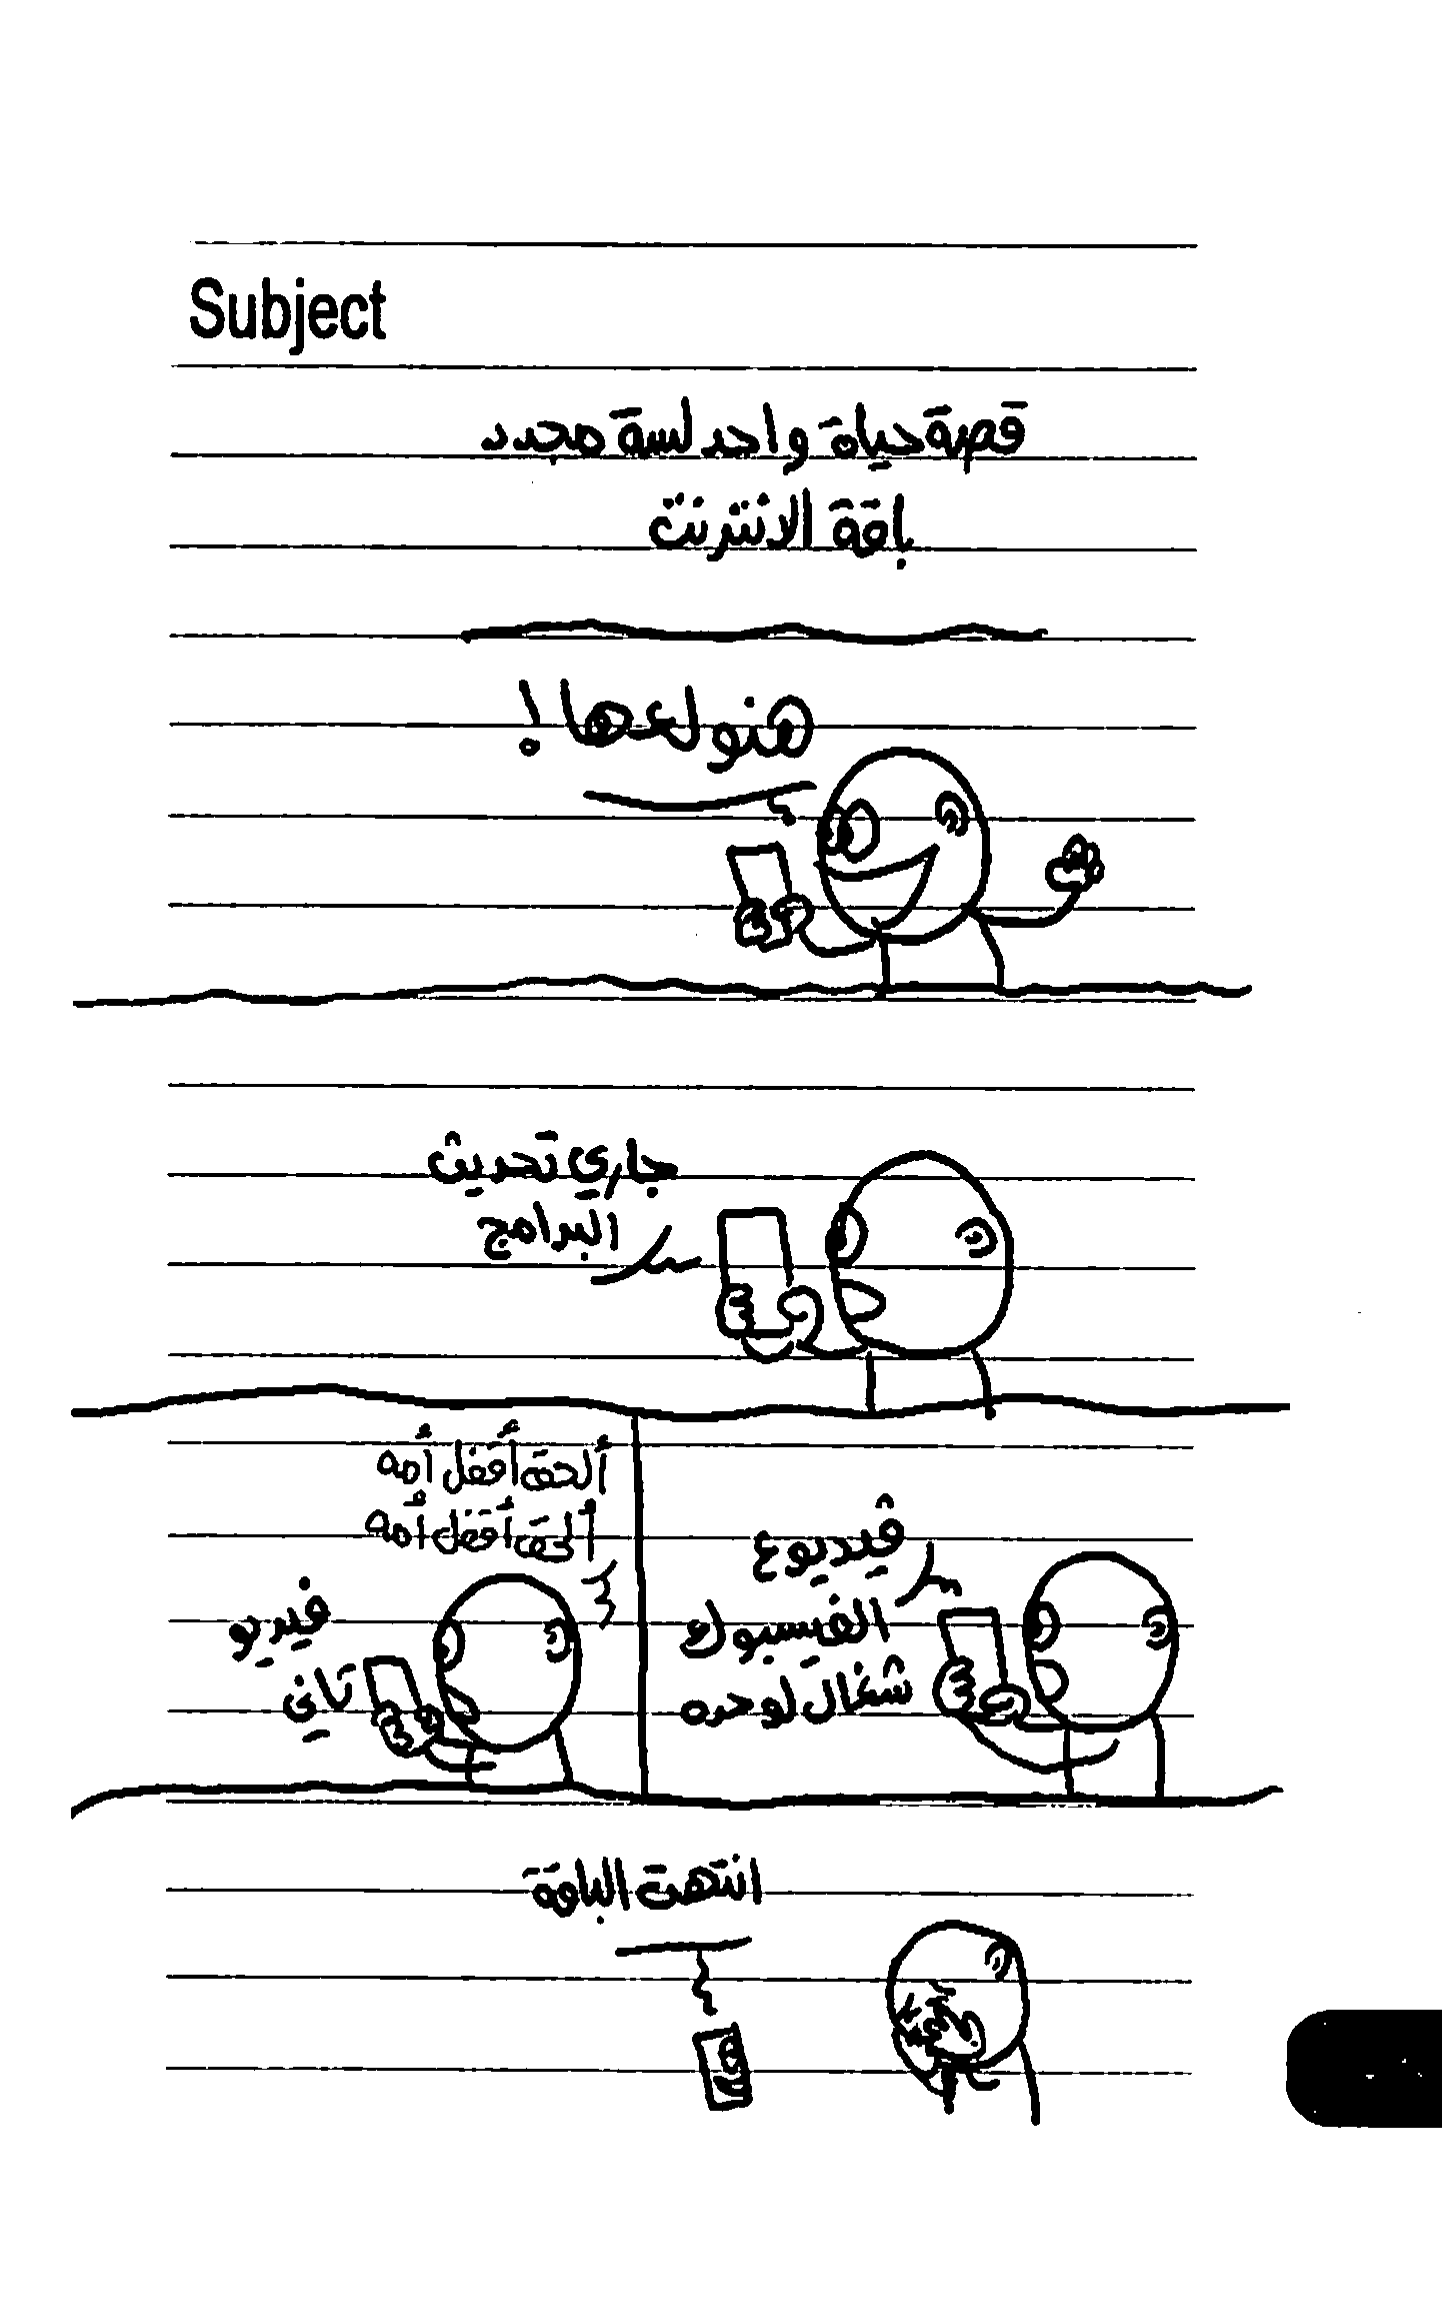 Subject
قصة حياة واحد لسة مجدد
باقة الانترنت
هنولعها!
جاري تحديث
البرامج
فيديو ع
الفيسبوك
شغال لوحده
ألحق أقفل أمه
ألحق أقفل أمه
فيديو
تاني
انتهت الباقة